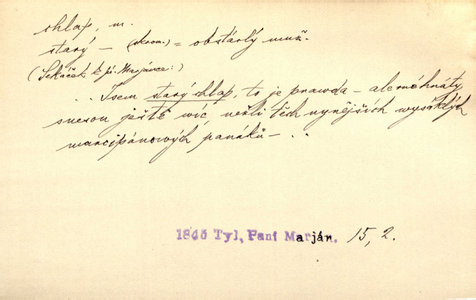 chlap, m.
starý – (skrom.) = obstárlý muž.
(Sekáček k pí. Marjánce:)
.. Jsem starý chlap, to je pravda – ale mé hnáty
snesou ještě víc, nežli těch nynějších vyschlých
marcipánových panáků – ..
1845 Tyl, Paní Marján. 15, 2.